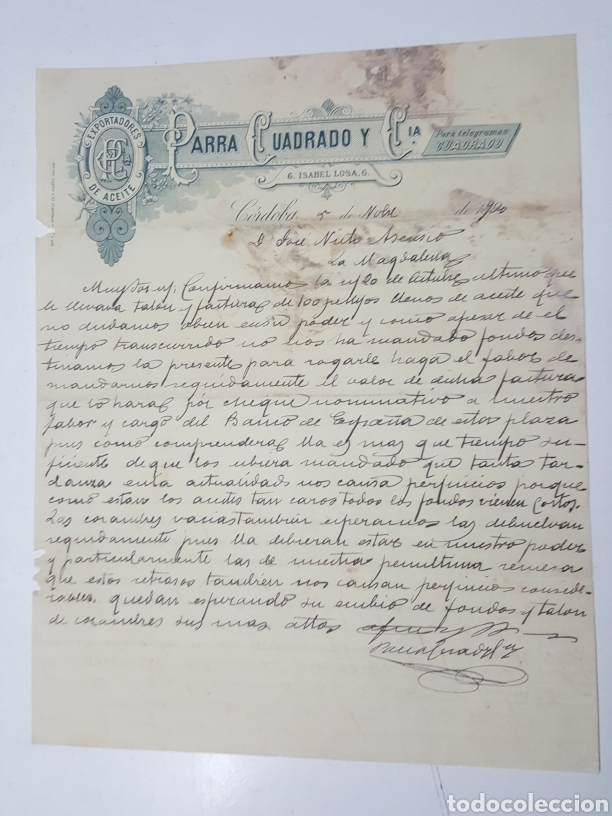 EXPORTADORES
DE ACEITE
PARRA CUADRADO Y CIA.
Para telegramas
CUADRADO
6. ISABEL LOSA, 6.
Córdoba 5 de Nobre de 1920
D. José Nieto Asensio
La Magdalena
Muy Sor. ntro.: Confirmamos la ntra. 20 de octubre ultimo que
le llevava talon y factura de 100 pellejos llenos de aceite que
no dudamos obren en su poder y como apesar de el
tiempo transcurrido no nos ha mandado fondos des-
tinamos la presente para rogarle haga el fabor de
mandarnos seguidamente el valor de dicha factura
que lo hará por cheque nominativo a nuestro
fabor y cargo del Banco de España de esta plaza
pues como comprenderá lla es mas que tiempo su-
ficiente de que los ubiera mandado que tanta tar-
danza en la actualidad nos causa perjuicios porque
como estan los aceites tan caros todos los fondos vienen cortos.
Las corambres vacias tambien esperamos las debuelvan
seguidamente pues lla debieran estar en nuestro poder
y particularmente las de nuestra penultima remesa
que estos retrasos tambien nos causan perjuicios conside-
rables. quedan esperando su embio de fondos y talon
de corambres sus mas attos
Parra Cuadrado y Cia
todocoleccion